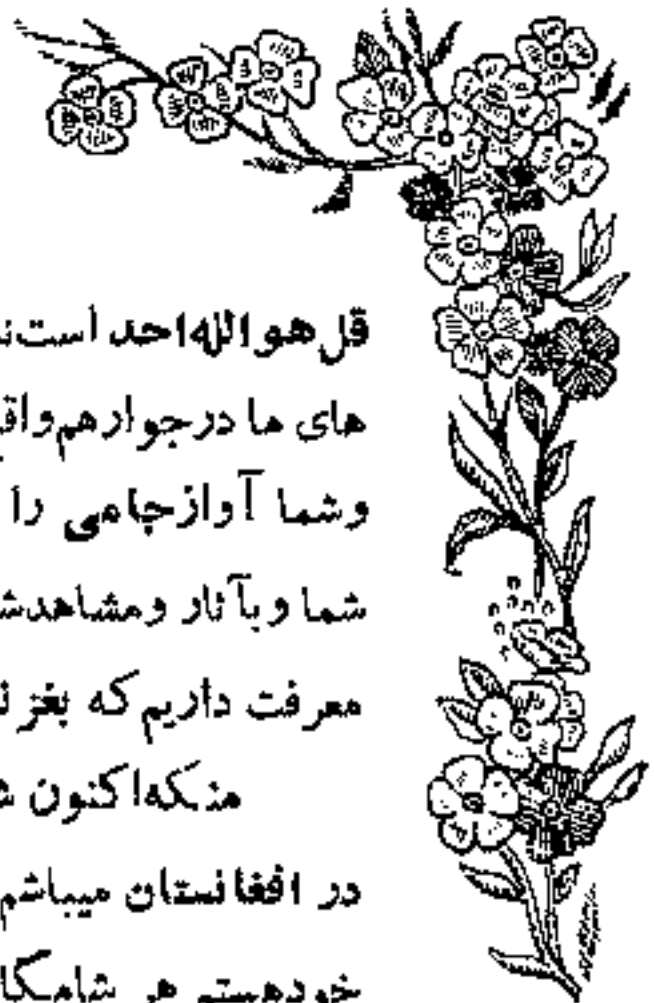 قل هو الله احد است
های ما در جوار هم
و شما آواز جامی را
شما و بآثار و مشاهد
معرفت داریم که
منکه اکنون
در افغانستان میباشم
خود هستم هر